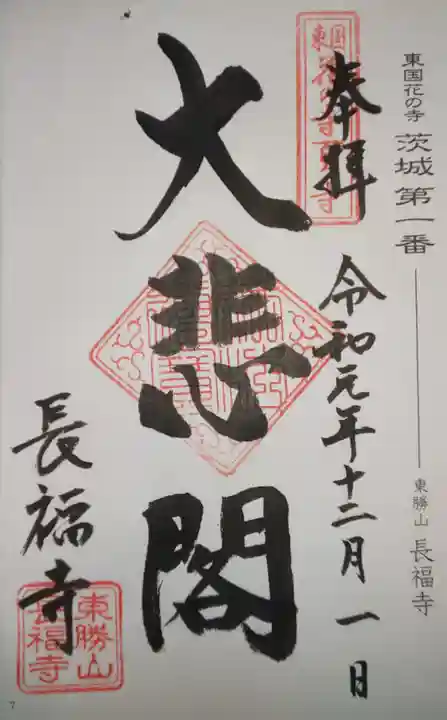 東国花の寺 茨城 第一番 東勝山 長福寺
奉拝
令和元年十二月一日
大悲閣
長福寺
東勝山
長福寺
7